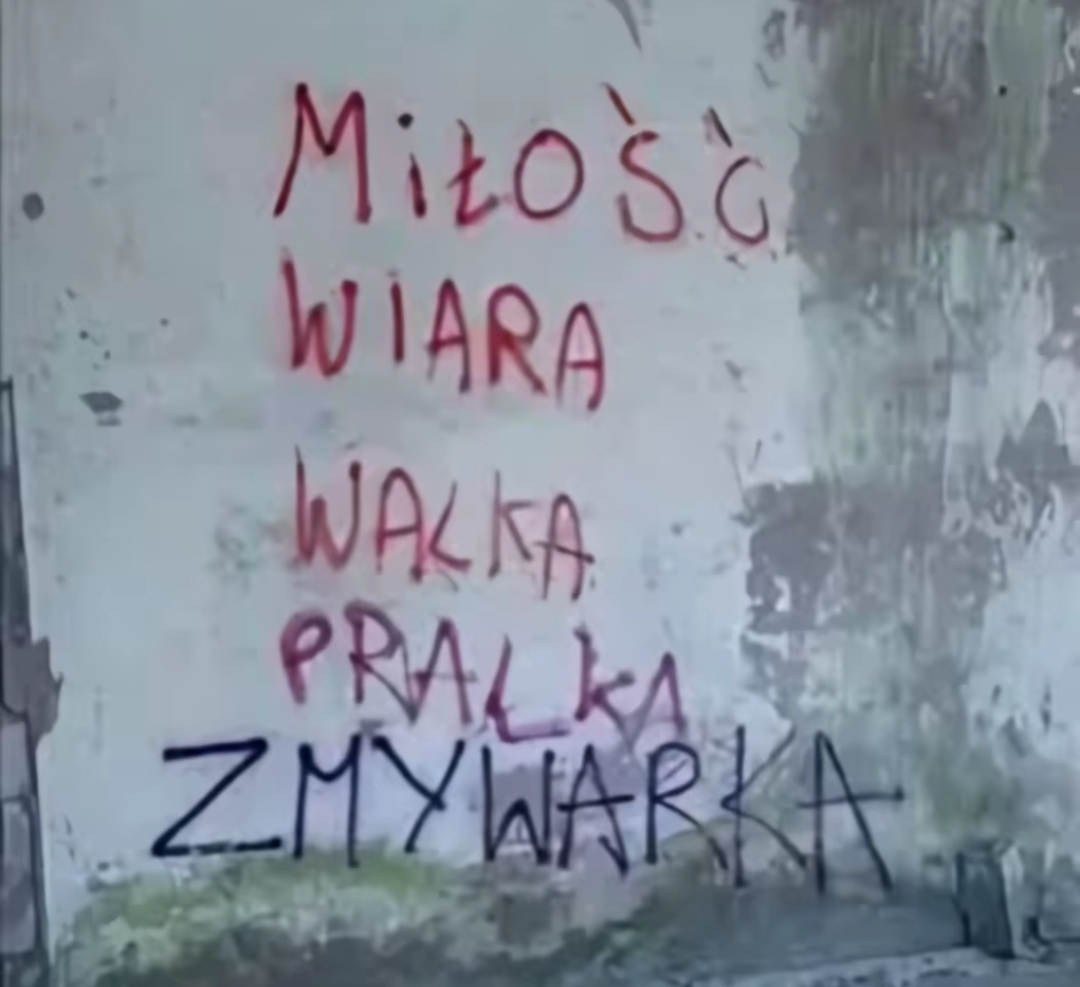 MiłOŚĆ
WIARA
WALKA
PRALKA
ZMYWARKA